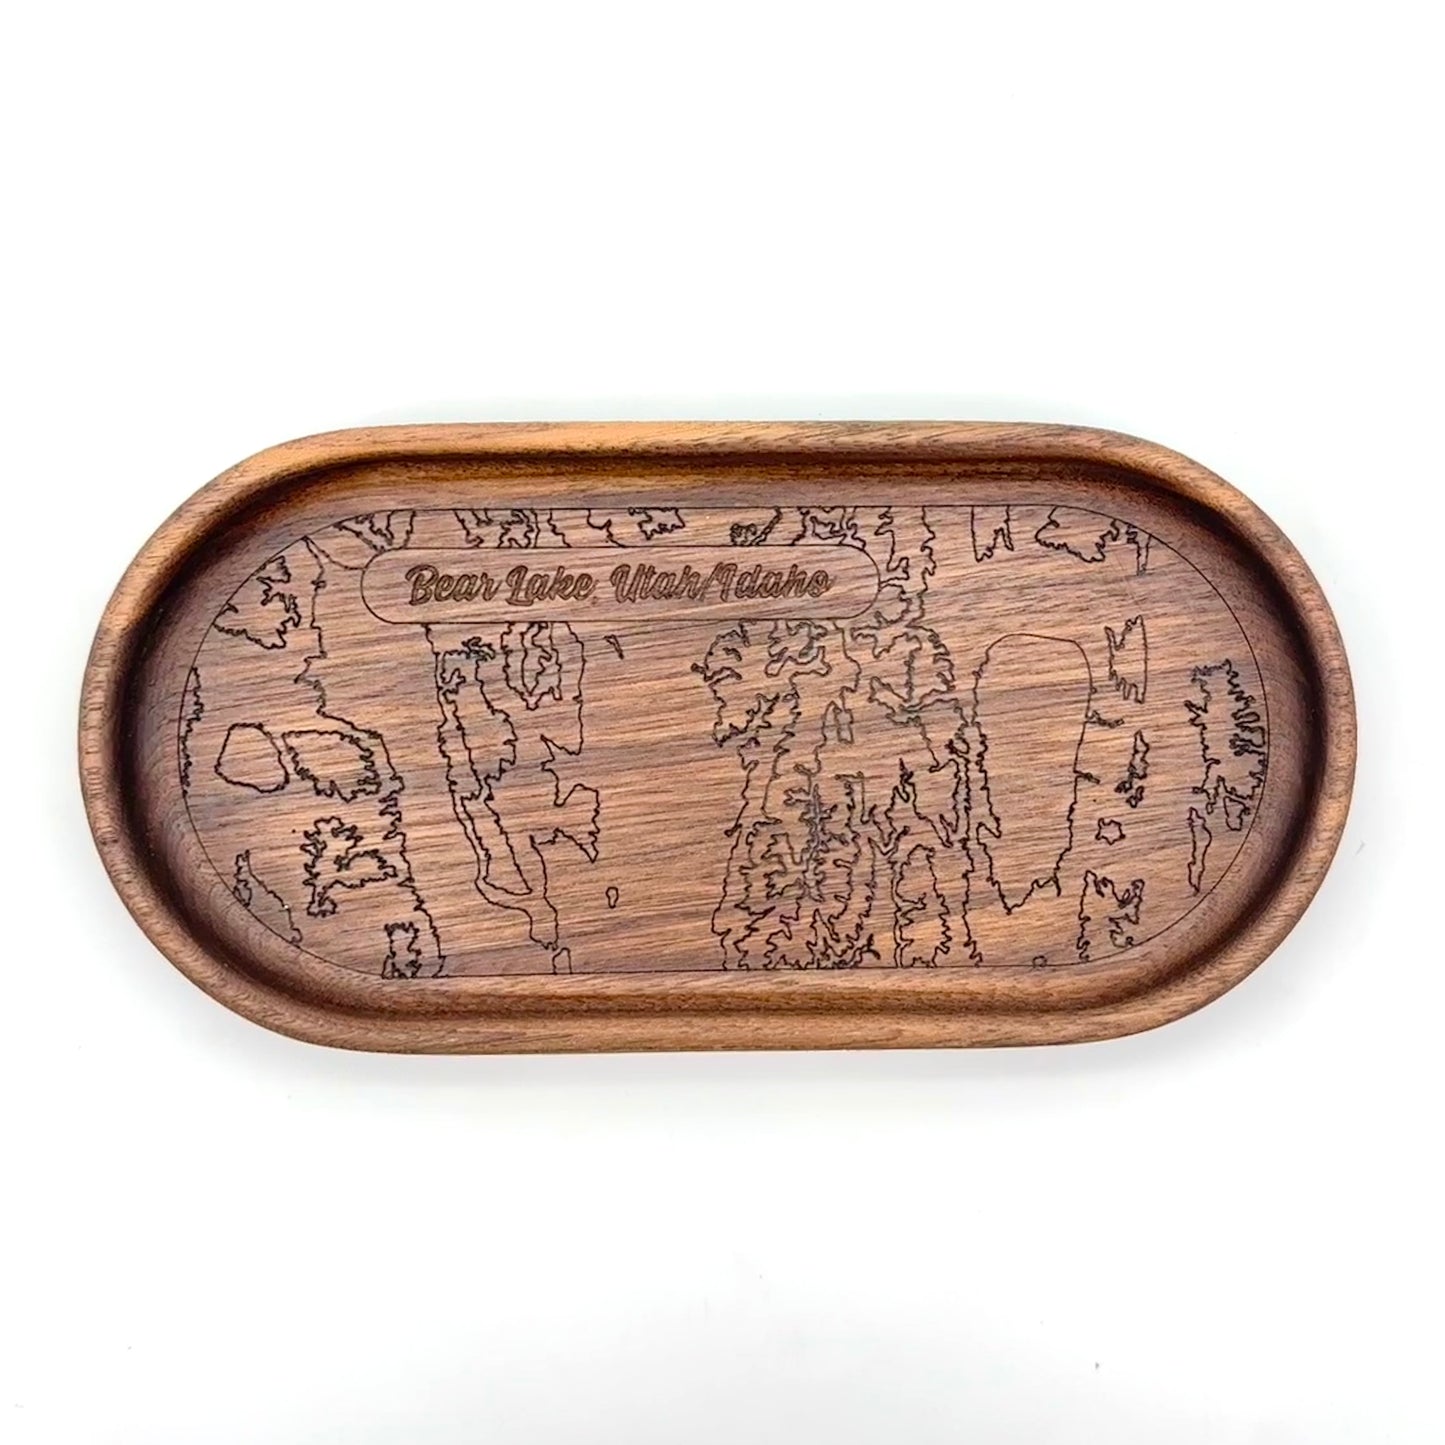 Bear Lake, Utah/Idaho